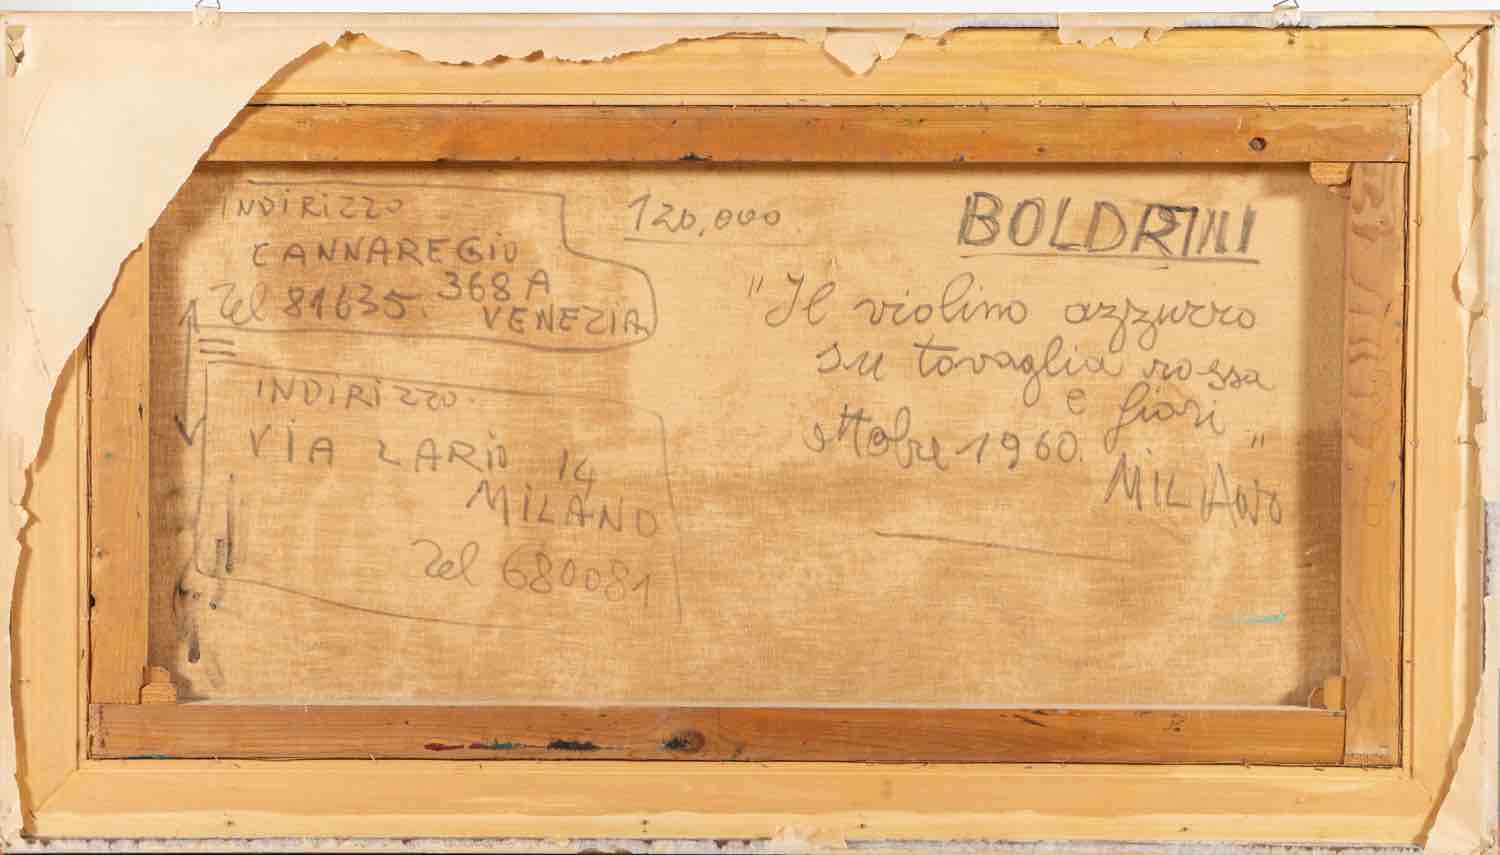 INDIRIZZO
CANNAREGIO
368 A
Tel 81635. VENEZIA
INDIRIZZO.
VIA LARIO 14
MILANO
Tel 680081
120,000
BOLDRINI
"Il violino azzurro
su tovaglia rossa
e fiori"
ottobre 1960.
MILANO